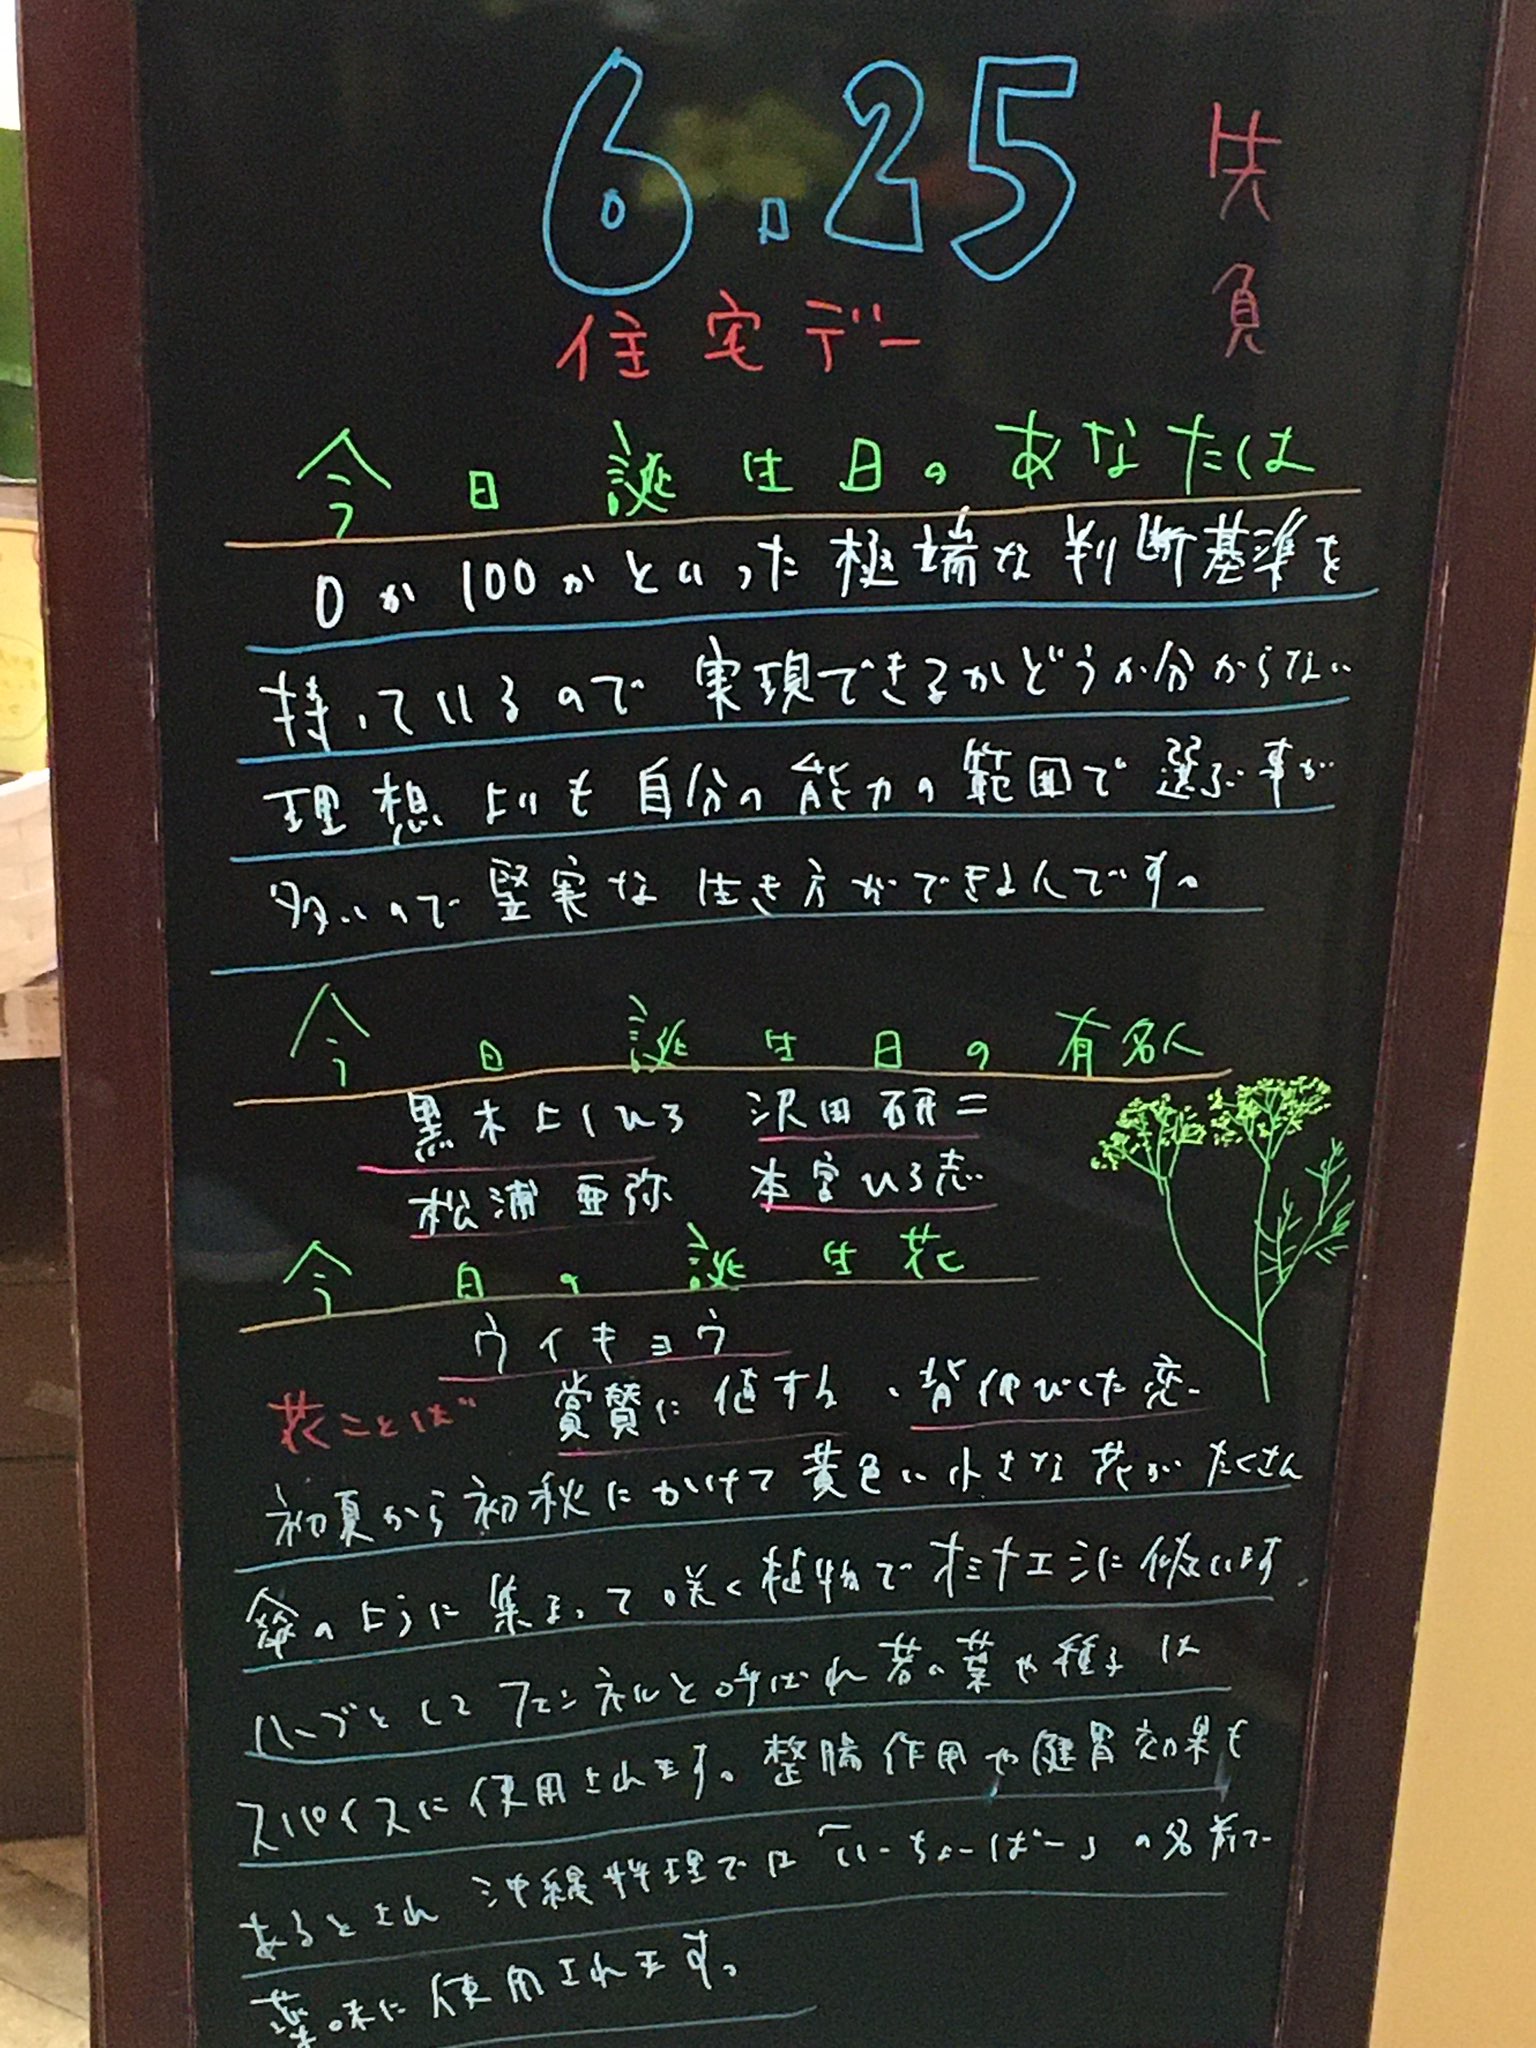 6.25
先負
住宅デー
今日誕生日のあなたは
0か100かといった極端な判断基準を
持っているので実現できるかどうか分からない
理想よりも自分の能力の範囲で選ぶ事が
多いので堅実な生き方ができる人です。
今日誕生日の有名人
黒木よしひろ 沢田研二
松浦亜弥 本宮ひろ志
今日の誕生花
ウイキョウ
花ことば 賞賛に値する、背伸びした恋
初夏から初秋にかけて黄色い小さな花がたくさん
傘のように集まって咲く植物でオミナエシに似ています
ハーブとしてフェンネルと呼ばれ若い葉や種子は
スパイスに使用されます。整腸作用や健胃効果も
あるとされ沖縄料理では「いーちょーばー」の名前で
薬味に使用されます。